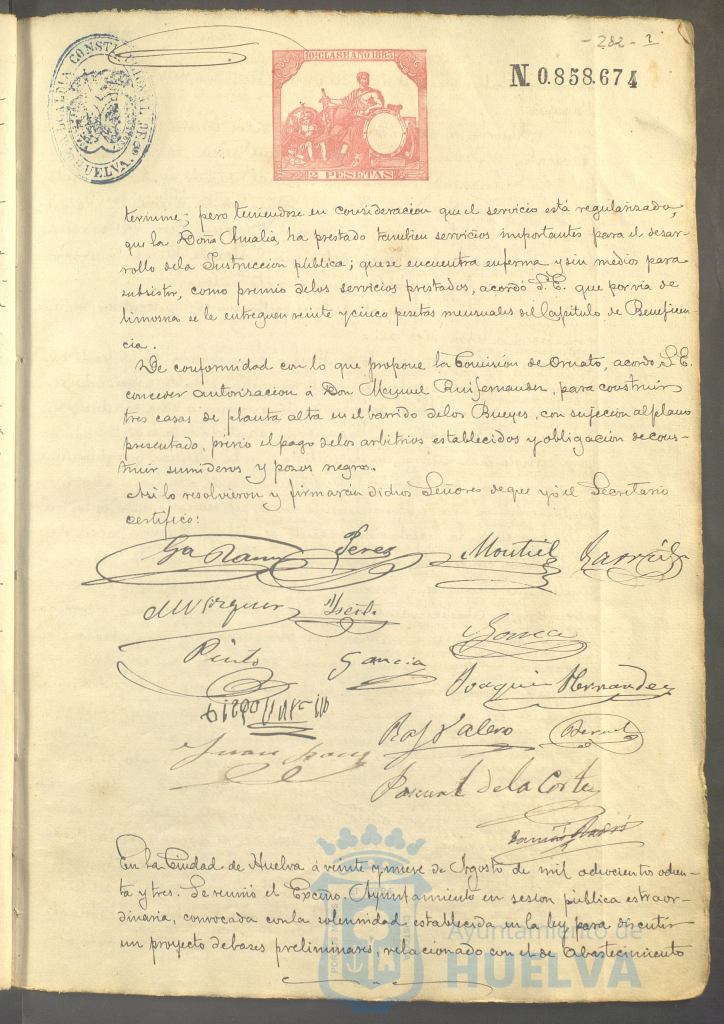 - 282 - 1
ALCALDIA CONSTITUCIONAL DE HUELVA
10ª CLASE AÑO 1883
2 PESETAS
N. 0.858.674
termine; pero teniendose en consideracion que el servicio está regularizado,
que la Doña Amalia, ha prestado tambien servicios importantes para el desar-
rollo dela Instruccion publica; quese encuentra enferma y sin medios para
subsistir, como premio delos servicios prestados, acordó S.E. que por via de
limosna se le entreguen veinte y cinco pesetas mensuales del Capitulo de Beneficen-
cia.
De conformidad con lo que propone la Comision de Ornato, acordó S.E.
conceder autorizacion á Don Manuel Ruifernandez, para construir
tres casas de planta alta en el barrido delos Bueyes, con sujecion al plano
presentado, previo el pago delos arbitrios establecidos y obligacion de cons-
truir sumideros y pozos negros.
Asi lo resolvieron y firmarán dichos Señores deque yo el Secretario
certifico:
Perez Montiel Garrido
Pinto Garcia
Joaquin Hernandez
Raf Valero Bernal
Juan
Pascual de la Corte
En la Ciudad de Huelva á veinte y nueve de Agosto de mil ochocientos ochen-
ta y tres. Se reunió el Excmo. Ayuntamiento en sesion publica estraor-
dinaria, convocada con la solemnidad establecida en la ley para discutir
un proyecto de bases preliminares, relacionado con el de Abastecimiento
Ayuntamiento de
HUELVA